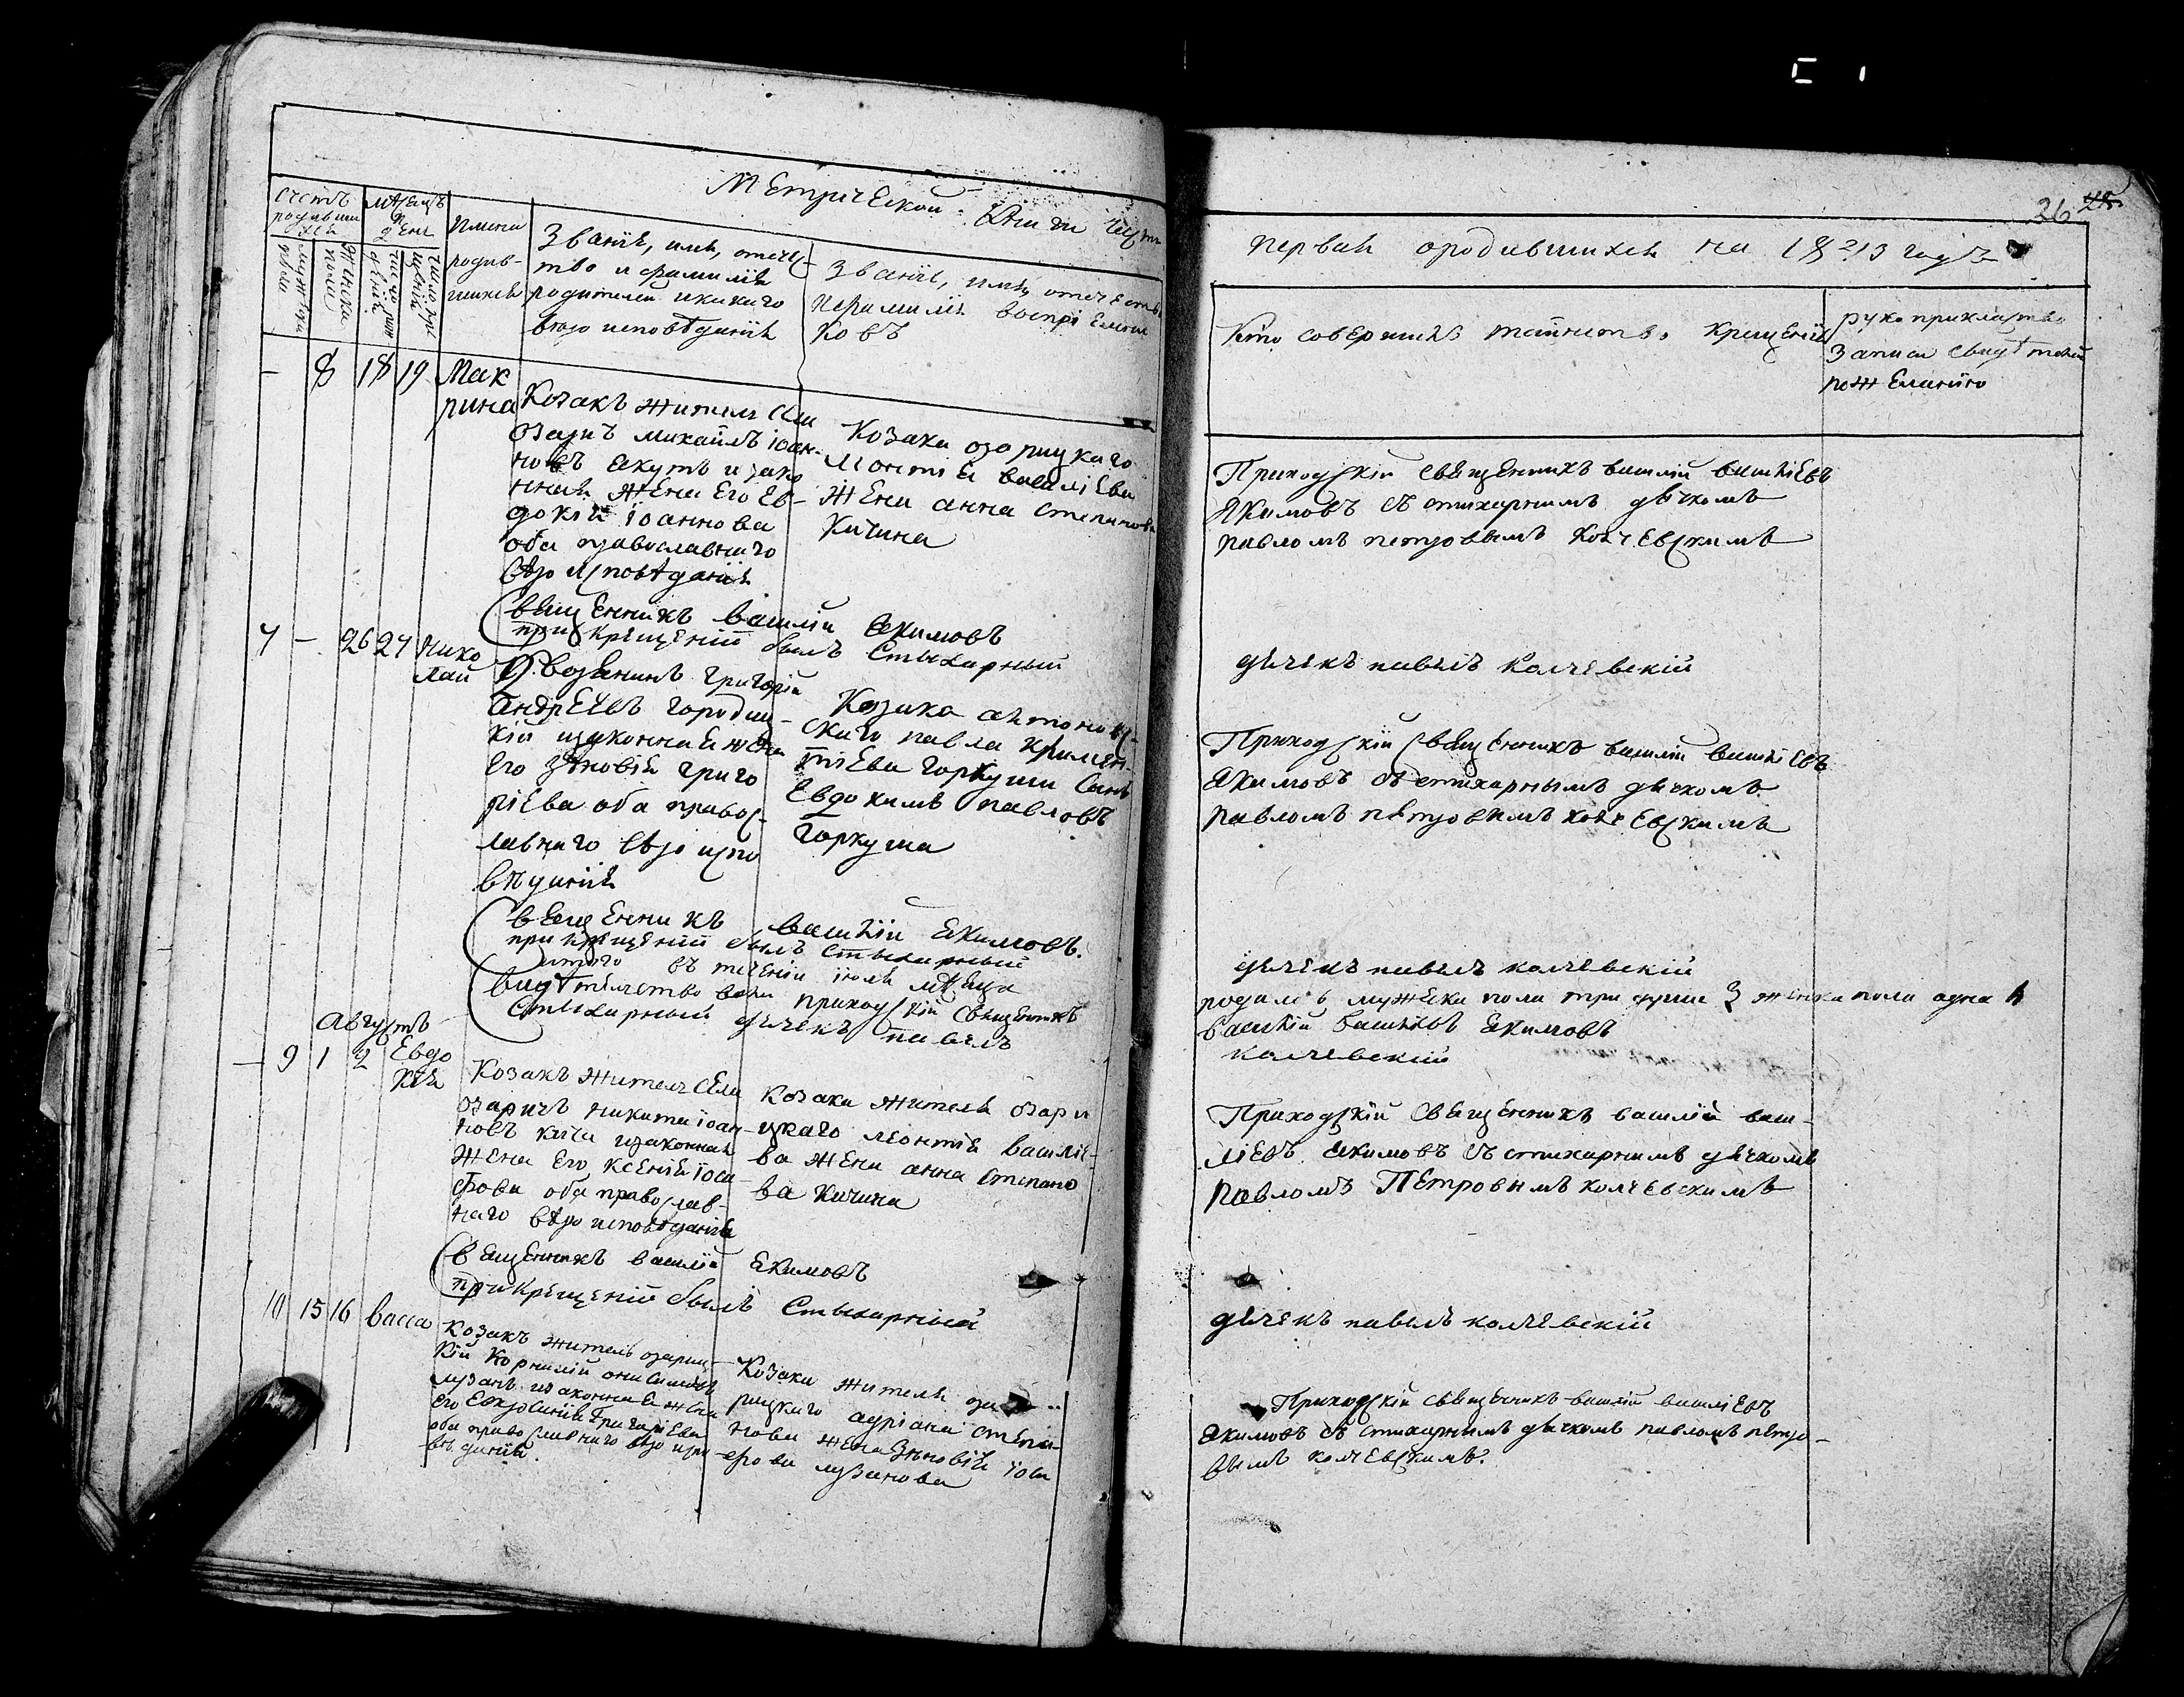 Метрической Книги части
первая ородившихся на 18 гидъ
26
счетъ родившихся
мѣсяцъ и день
имена родив-шихся
Званіе, имя, отечество и фамилія родителей икакаго вѣроисповѣданія
Званіе, имя, отечество и фамилія воспріемниковъ
Кто совершилъ таинство крещенія
рукоприкладство записи свидѣтелей пожеланію
мужеска
женска пола
число рожденій
- 8 18 19
Мак
рина
Козакъ житель села
озаричъ михайлъ іоан-
новъ
жена его Ев-
докія іоаннова
оба православнаго
вѣроисповѣданія
Козака озорицкаго
леонтія василіева
жена анна степанова
Кичина
Приходскій священникъ василій василіевъ
Якимовъ съ стихарнымъ дячкомъ
павломъ петровымъ колчевскимъ
священникъ василій якимовъ
при крещеніи былъ Стыхарный
дячекъ павелъ колчевскій
7 - 26 27
Нико
лай
григорій
андреевъ городиц-
кій изаконная жена
его зѣновія григо
ріева оба правос-
лавнаго вѣроиспо
вѣданія
Козака антоновс-
скаго павла
горкуши сынъ
Евдокимъ павловъ
горкуша
Приходскій священникъ василій василіевъ
Якимовъ съ стихарнымъ дячкомъ
павломъ петровимъ колчевскимъ
священникъ василій якимовъ.
при крещеніи былъ Стыхарный
дячекъ павелъ колчевскій
итого въ теченіи іюля мѣсяца
родилось мужеска пола три души 3 женска пола одна 1
свидѣтельствовали приходскій священникъ
василій василіевъ якимовъ
Стыхарный дячекъ павелъ
колчевскій
Августъ
- 9 1 2
Евдо
кія
Козакъ житель села
озаричъ никита іоан-
новъ кича изаконная
жена его ксенія іоси
фова оба православ-
наго вѣроисповѣданія
Козака жителя озари
цкаго леонтія василіе-
ва жена анна степано
ва кичина
Приходскій священникъ василій васи-
ліевъ якимовъ съ стихарнимъ дячкомъ
Павломъ Петровымъ колчевскимъ
священникъ василій якимовъ
при крещеніи былъ Стыхарный
дячекъ павелъ колчевскій
10 15 16
васса
Козакъ житель озариц-
кій Корнилій онисимовъ
лузанъ изаконная жена
его Евфросинія григоріева
оба православнаго вѣроиспо-
вѣданія.
Козака жителя оза
рицкого адріана степа-
нова жена зѣновія іоси
фова лузанова
Приходскій священникъ василій василіевъ
якимовъ съ стихарнымъ дячкомъ павломъ петро-
вымъ колчевскимъ.